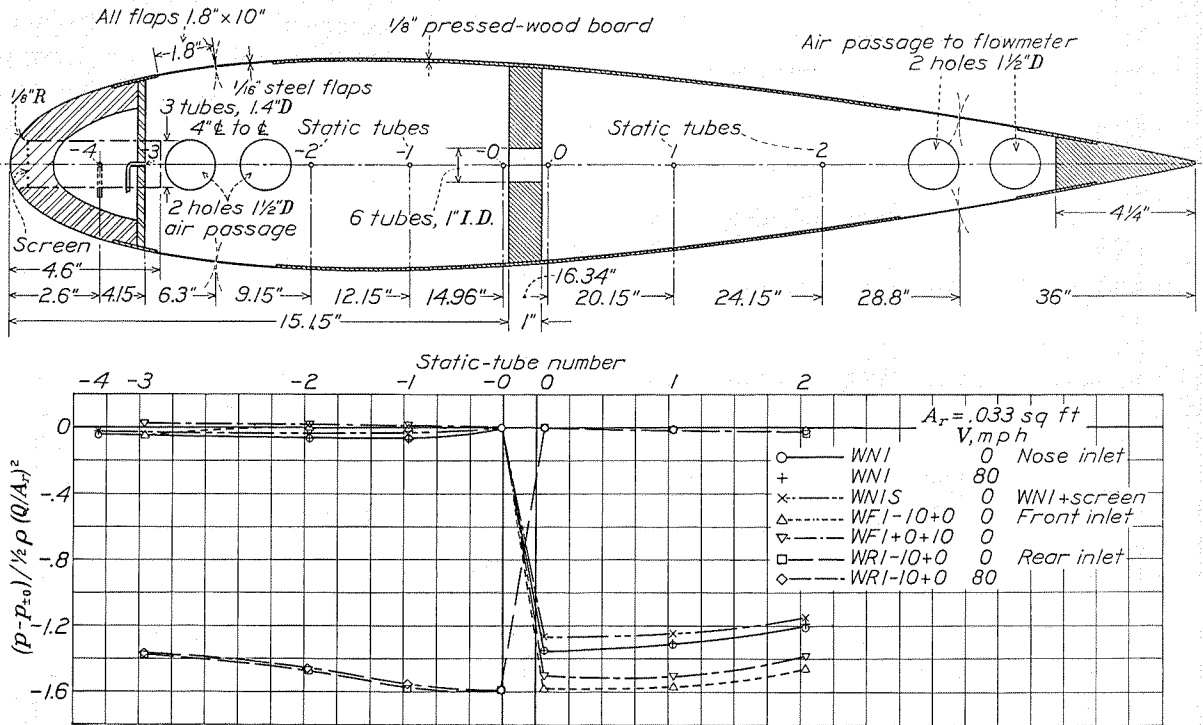 All flaps 1.8"×10"
1/8" pressed-wood board
-1.8"
1/16" steel flaps
Air passage to flowmeter
2 holes 1½"D
1/8"R
3 tubes, 1.4"D
4" ℄ to ℄
Static tubes
Static tubes
-4
-3
-2
-1
-0
0
1
2
2 holes 1½"D
air passage
6 tubes, 1" I.D.
Screen
4¼"
4.6"
16.34"
2.6"
4.15
6.3"
9.15"
12.15"
14.96"
20.15"
24.15"
28.8"
36"
15.15"
1"
Static-tube number
-4 -3 -2 -1 -0 0 1 2
0
-.4
-.8
-1.2
-1.6
(p-p±0)/½ρ(Q/Ar)²
Ar = .033 sq ft
V, mph
WN1 0 Nose inlet
WN1 80
WN1S 0 WN1+screen
WF1-10+0 0 Front inlet
WF1+0+10 0
WR1-10+0 0 Rear inlet
WR1-10+0 80